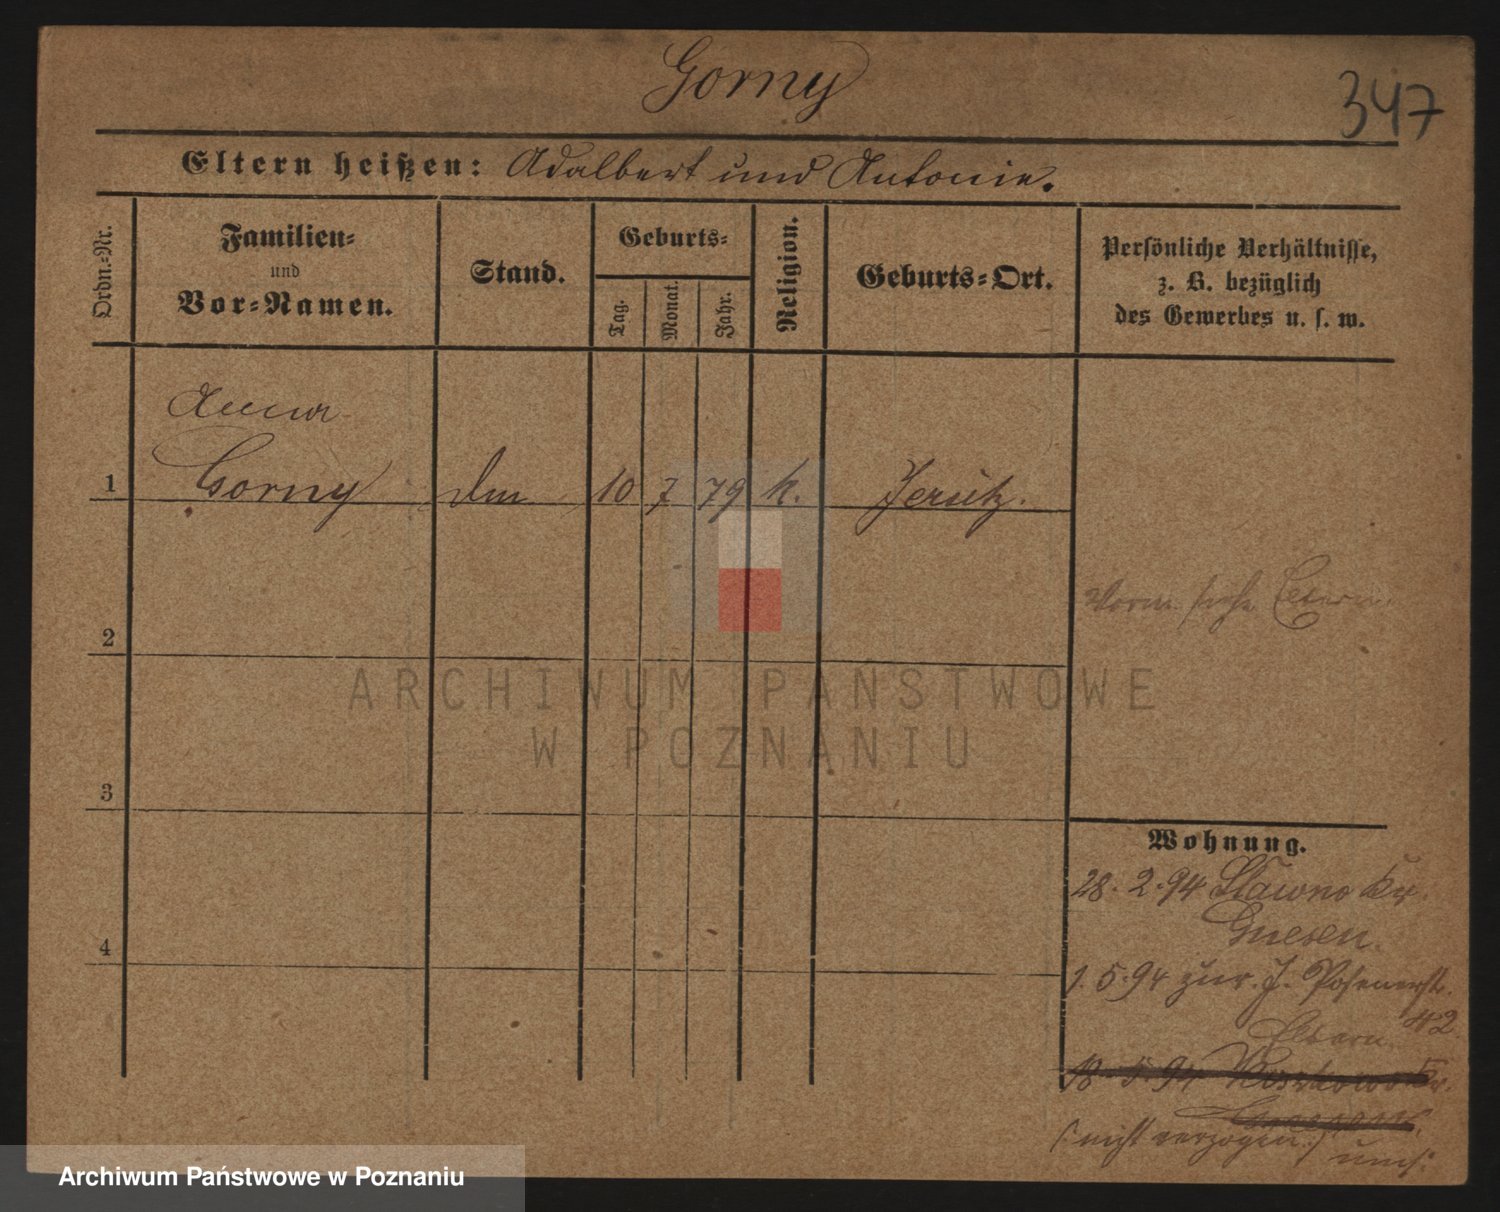 Gorny
347
Eltern heißen: Adalbert und Antonie.
Ordn.-Nr.
Familien-
und
Vor-Namen.
Stand.
Geburts-
Tag.
Monat.
Jahr.
Religion.
Geburts-Ort.
Persönliche Verhältnisse,
z. B. bezüglich
des Gewerbes u. s. w.
Anna
1 Gorny 10 7 79 k. Jersitz.
Vorm. siehe Eltern.
2
ARCHIWUM PAŃSTWOWE
W POZNANIU
3
Wohnung.
28. 2. 94 Slawno Kr.
Gnesen.
4
1. 5. 94 zur. J. Posenerstr.
42
Eltern.
18. 5. 94 Kr.
Gnesen.
(: nicht verzogen :)
Archiwum Państwowe w Poznaniu